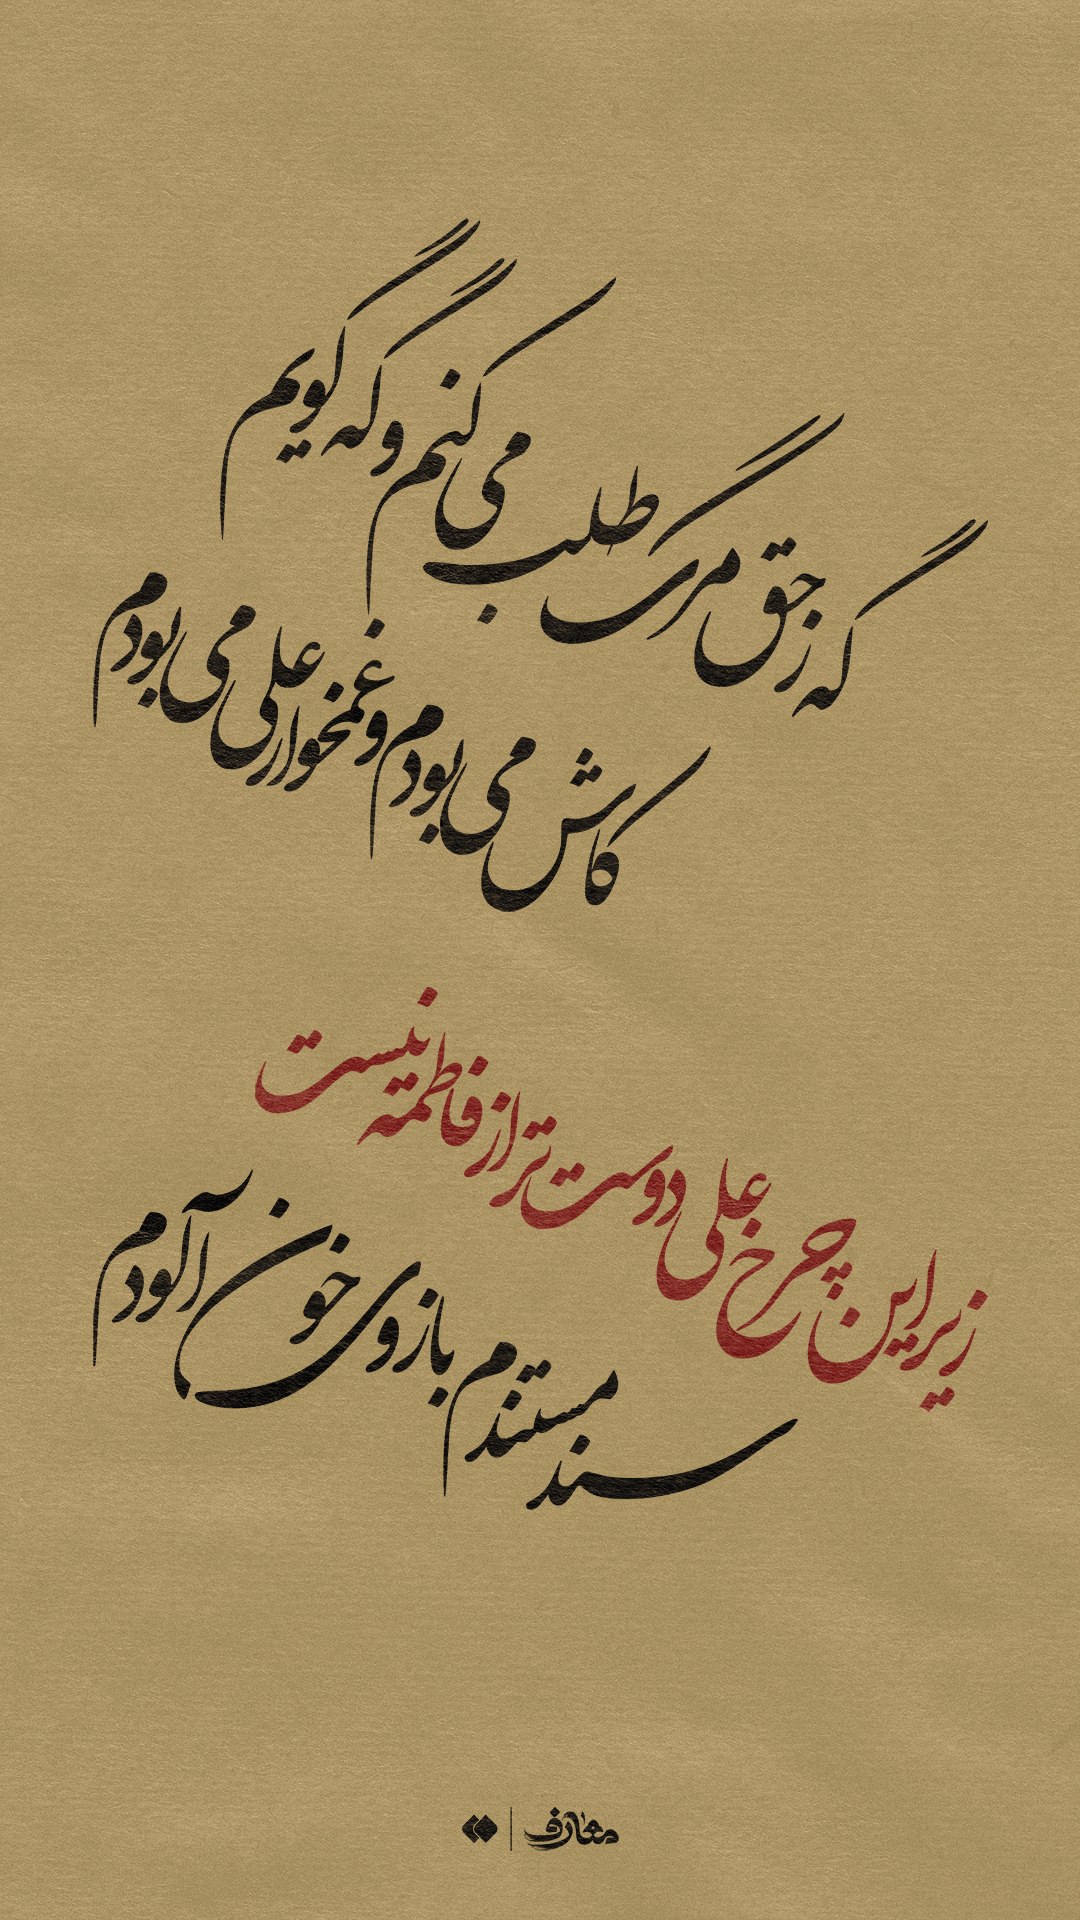 گه ز حق مرگ طلب می کنم و گه گویم
کاش می بودم و غمخوار علی می بودم
زیر این چرخ علی دوست تر از فاطمه نیست
سند مستندم بازوی خون آلودم
معارف